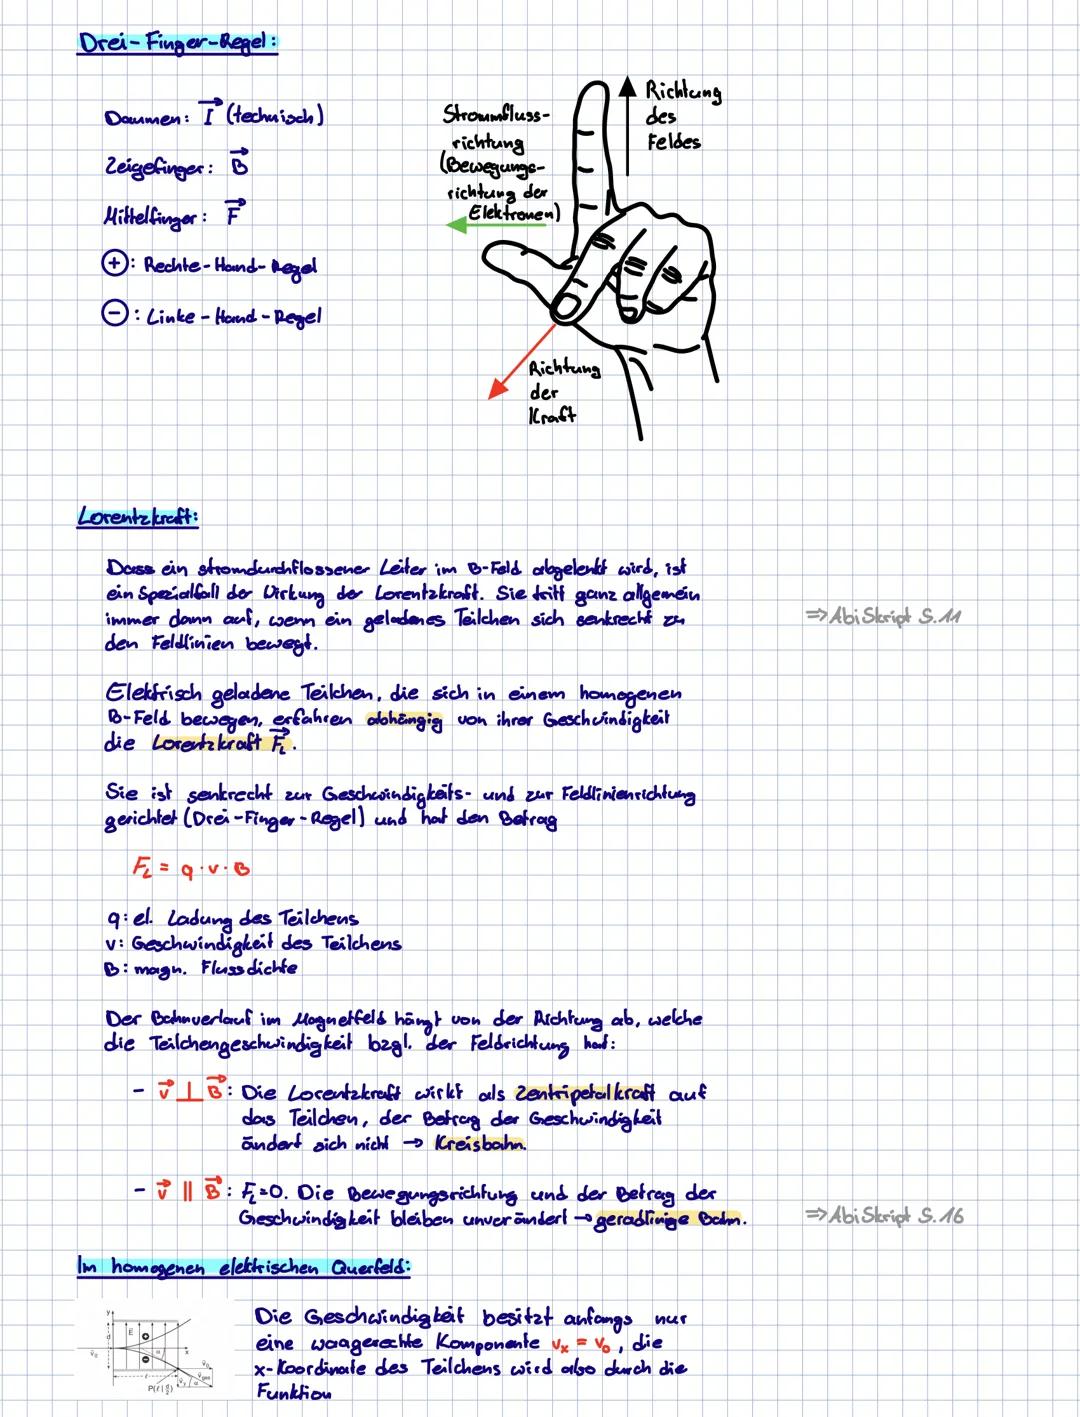 Drei-Finger-Regel:
Daumen: I (technisch)
Zeigefinger: B
Mittelfinger: F
+: Rechte-Hand-Regel
-: Linke-Hand-Regel
Stromfluss-
richtung
(Bewegungs-
richtung der
Elektronen)
Richtung
des
Feldes
Richtung
der
Kraft
Lorentzkraft:
Dass ein stromdurchflossener Leiter im B-Feld abgelenkt wird, ist
ein Spezialfall der Wirkung der Lorentzkraft. Sie tritt ganz allgemein
immer dann auf, wenn ein geladenes Teilchen sich senkrecht zu
den Feldlinien bewegt.
=> AbiSkript S.11
Elektrisch geladene Teilchen, die sich in einem homogenen
B-Feld bewegen, erfahren abhängig von ihrer Geschwindigkeit
die Lorentzkraft F_L.
Sie ist senkrecht zur Geschwindigkeits- und zur Feldlinienrichtung
gerichtet (Drei-Finger-Regel) und hat den Betrag
F_L = q · v · B
q: el. Ladung des Teilchens
v: Geschwindigkeit des Teilchens
B: magn. Flussdichte
Der Bahnverlauf im Magnetfeld hängt von der Richtung ab, welche
die Teilchengeschwindigkeit bzgl. der Feldrichtung hat:
- v ⊥ B: Die Lorentzkraft wirkt als Zentripetalkraft auf
das Teilchen, der Betrag der Geschwindigkeit
ändert sich nicht → Kreisbahn.
- v || B: F_L=0. Die Bewegungsrichtung und der Betrag der
Geschwindigkeit bleiben unverändert → geradlinige Bahn.
=> AbiSkript S.16
Im homogenen elektrischen Querfeld:
y
E
d
+
-
α
x
v₀
l
Die Geschwindigkeit besitzt anfangs nur
eine waagerechte Komponente vₓ = v₀, die
x-Koordinate des Teilchens wird also durch die
Funktion